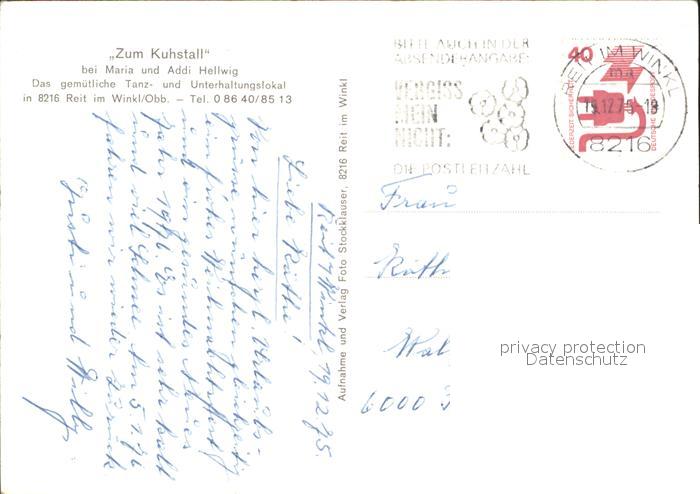 „Zum Kuhstall"
bei Maria und Addi Hellwig
Das gemütliche Tanz- und Unterhaltungslokal
in 8216 Reit im Winkl/Obb. – Tel. 0 86 40/85 13
Reit i/Winkl, 19.12.75.
Liebe Käthe!
Von hier herzl. Urlaubs-
grüsse, wünschen gleichzeitig
ein frohes Weihnachtsfest
und ein gesundes Neues
Jahr 1976. Es ist sehr kalt
und viel Schnee. Am 5.1.76
fahren wir wieder zurück
und Willy
Aufnahme und Verlag Foto Stockklauser, 8216 Reit im Winkl
BITTE AUCH IN DER
ABSENDERANGABE:
VERGISS
MEIN
NICHT:
DIE POSTLEITZAHL
REIT IM WINKL
19.12.75-18
8216
40
JEDERZEIT SICHERHEIT
DEUTSCHE BUNDESPOST
Frau
Käth
Wal
6000
privacy protection
Datenschutz